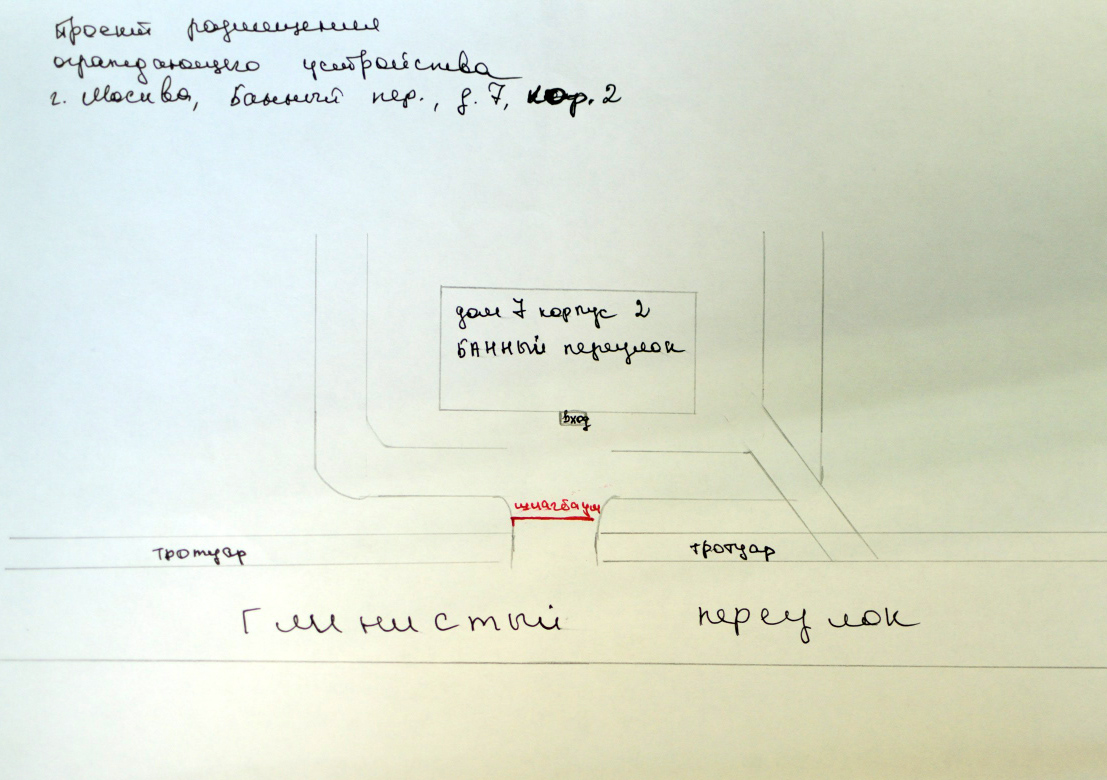 Проект размещения
ограждающего устройства
г. Москва, Банный пер., д. 7, кор. 2
дом 7 корпус 2
БАННЫЙ переулок
вход
шлагбаум
тротуар
тротуар
Глинистый переулок